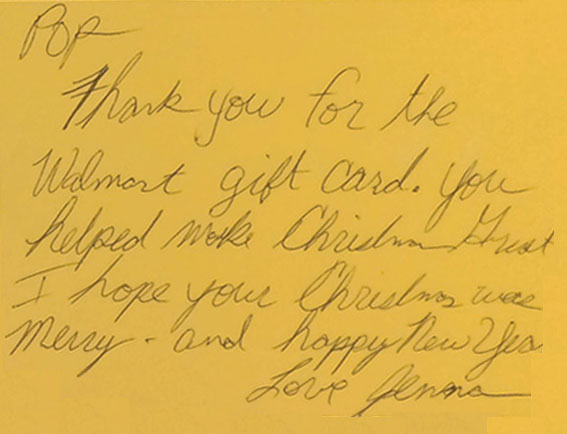 Pop
Thank you for the
Walmart gift card. you
helped make Christmas Great
I hope your Christmas was
merry - and happy New Yea
Love Jenna